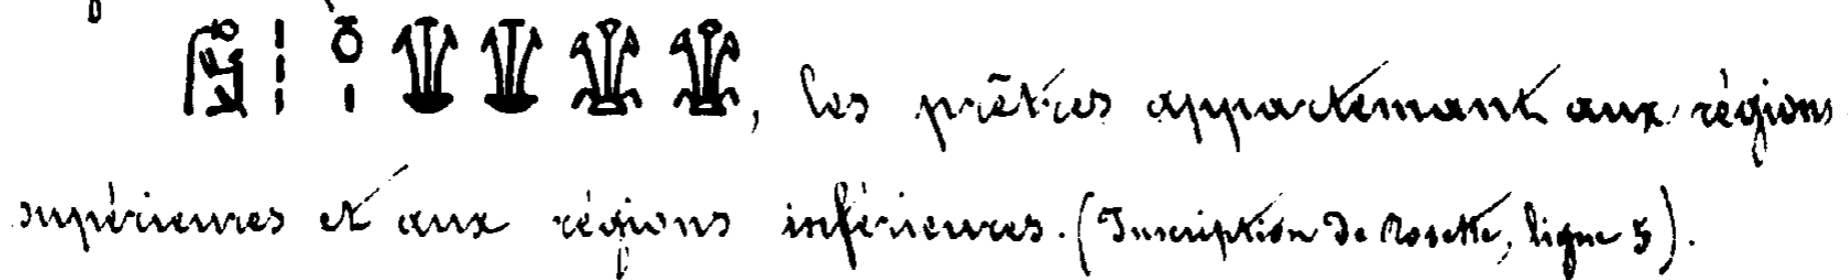 , les prêtres appartenant aux régions
supérieures et aux régions inférieures. (Inscription de Rosette, ligne 5).